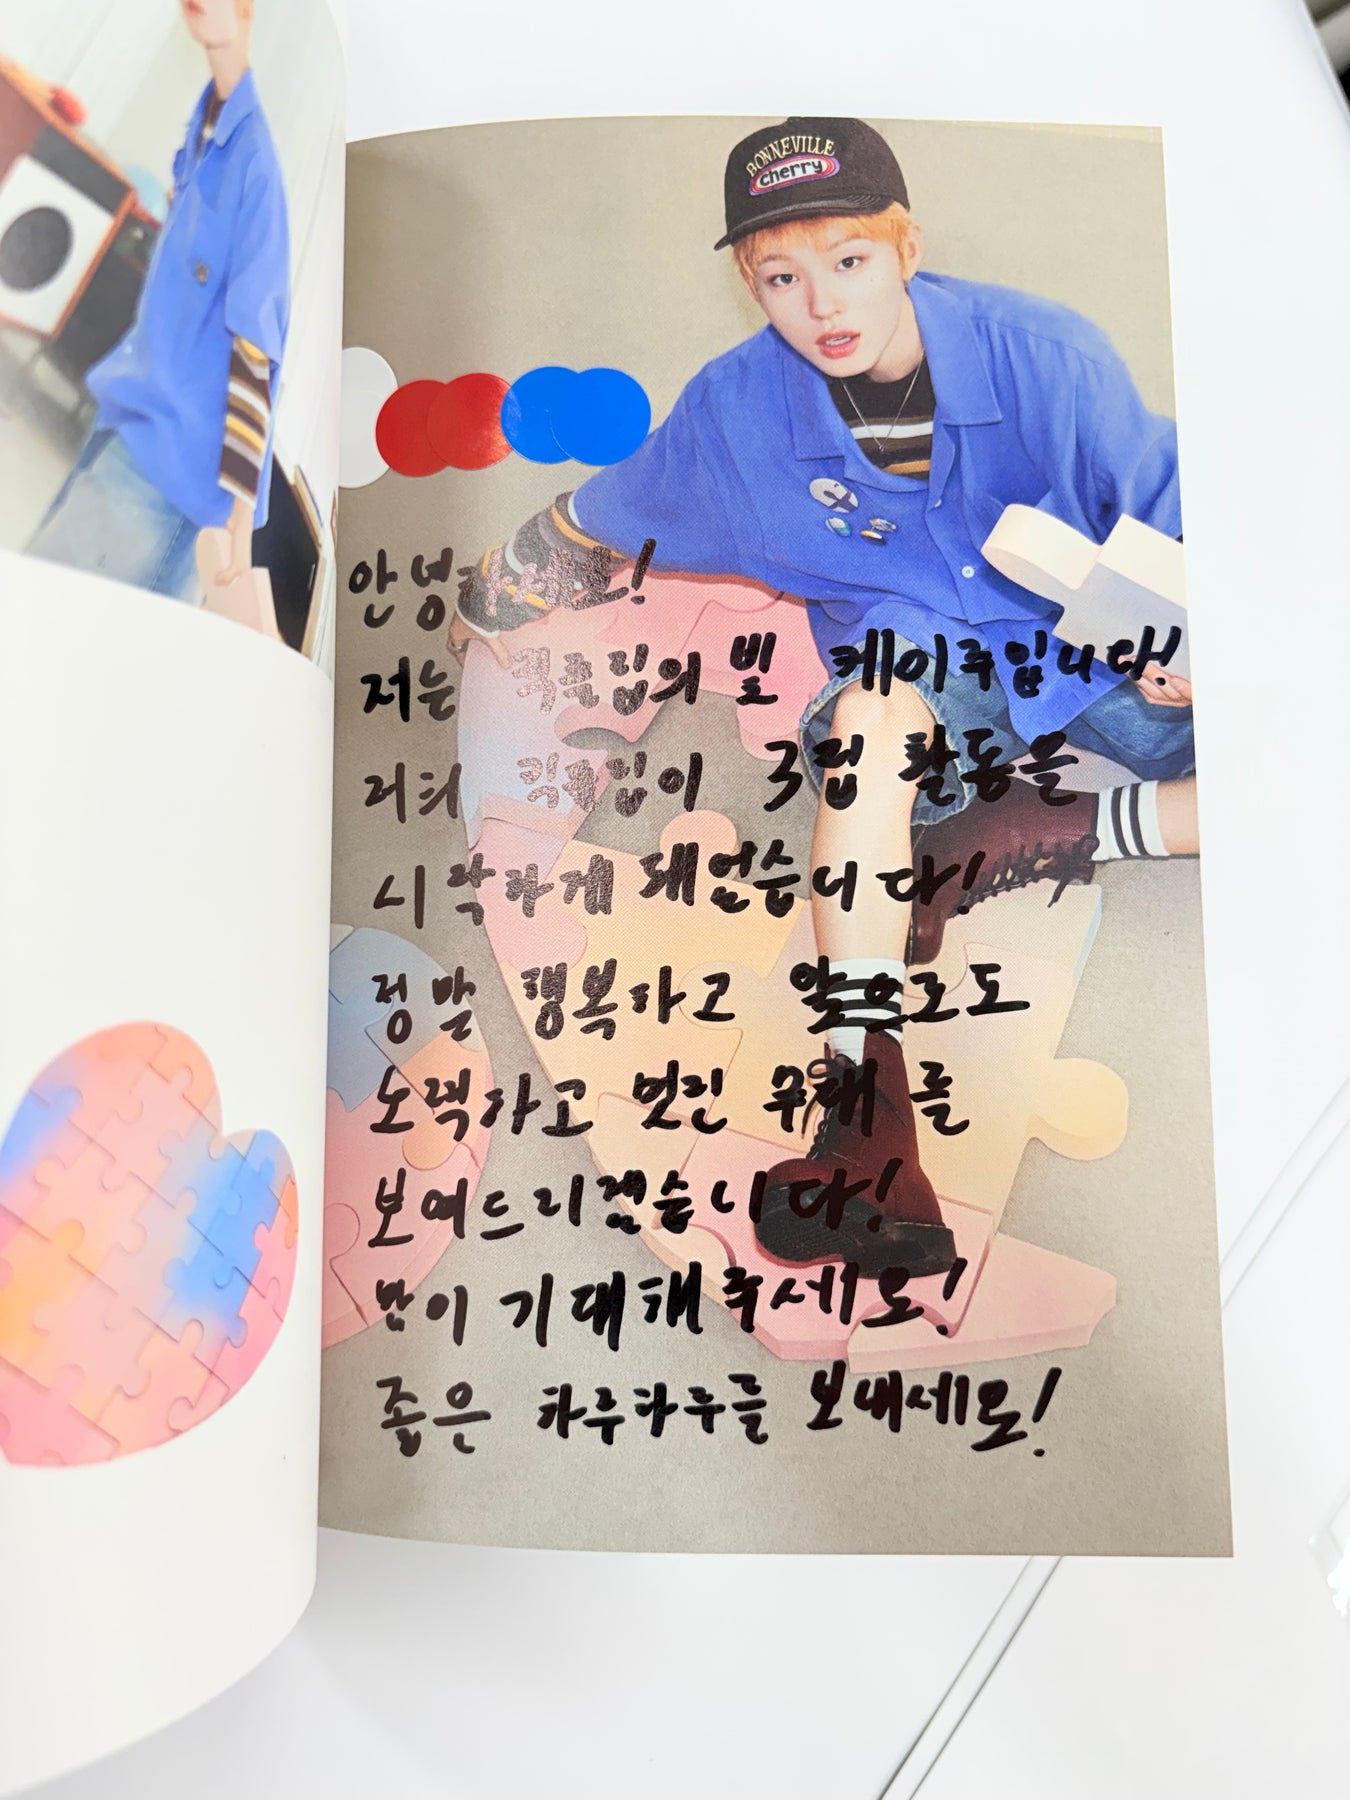 BONNEVILLE
cherry
안녕하세요!
저는 킥플립의 빛 케이주입니다!
저희 킥플립이 3집 활동을
시작하게 돼었습니다!
정말 행복하고 앞으로도
노력하고 멋진 무대를
보여드리겠습니다!
많이 기대해주세요!
좋은 하루하루를 보내세요!